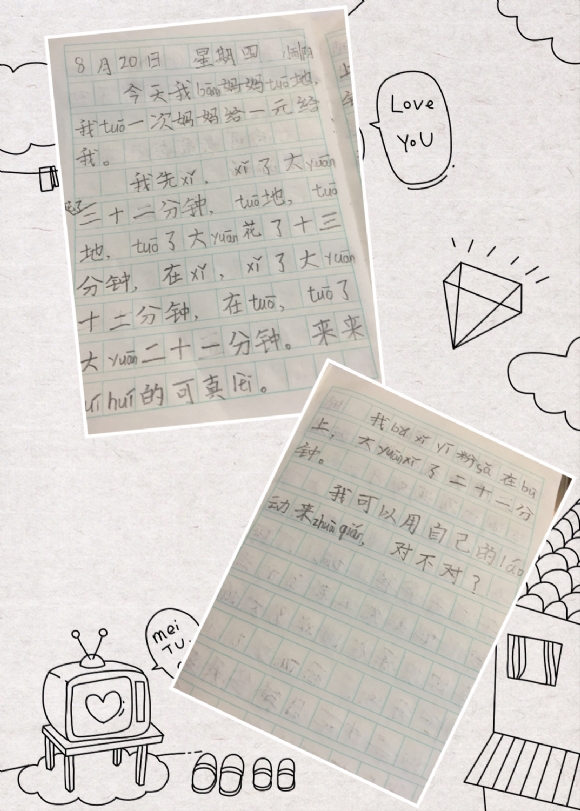 8月20日 星期四 阴
今天我bānɡ妈妈tuō地,
我tuō一次妈妈给一元给
我。
我先xǐ, xǐ了大yuān
三十二分钟, tuō地, tuō
地, tuō了大yuān花了十三
分钟, 在xǐ, xǐ了大yuān
十二分钟, 在tuō, tuō了
大yuān二十一分钟。来来
huí的可真lèi。
我bǎ xǐ yī粉sǎ在bǎ
上, 大yuān xǐ了二十一分
钟。
我可以用自己的láo
动来zhuàn qián, 对不对?
Love
YoU
mei
TU.